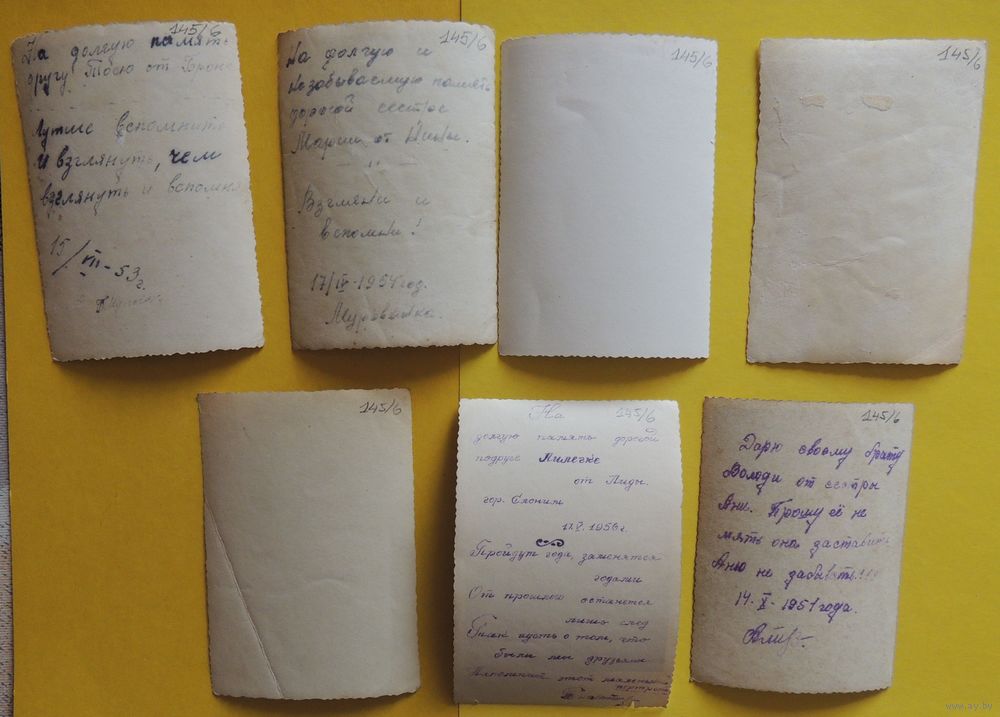 145/6
На долгую память
другу Тасю от Брони
Лутше вспомнить
и взглянуть, чем
взглянуть и вспомня
15/VII-53г.
145/6
На долгую и
незабываемую память
дорогой сестре
Марии от Нины.
Взгляни и
вспомни!
17/IV-1954 год.
145/6
145/6
145/6
На 145/6
долгую память дорогой
подруге Лилечке
от Лиды.
гор. Слоним
17.V.1956г.
Пройдут года, заменятся
годами
От прошлого останется
лишь след
Так пусть о том, что
были мы друзьями
Напомнит этот маленький
портрет
145/6
Дарю своему брату
Володи от сестры
Ани. Прошу её не
мять она даставить
Аню не забывать
14.X-1951 года.
www.ay.by